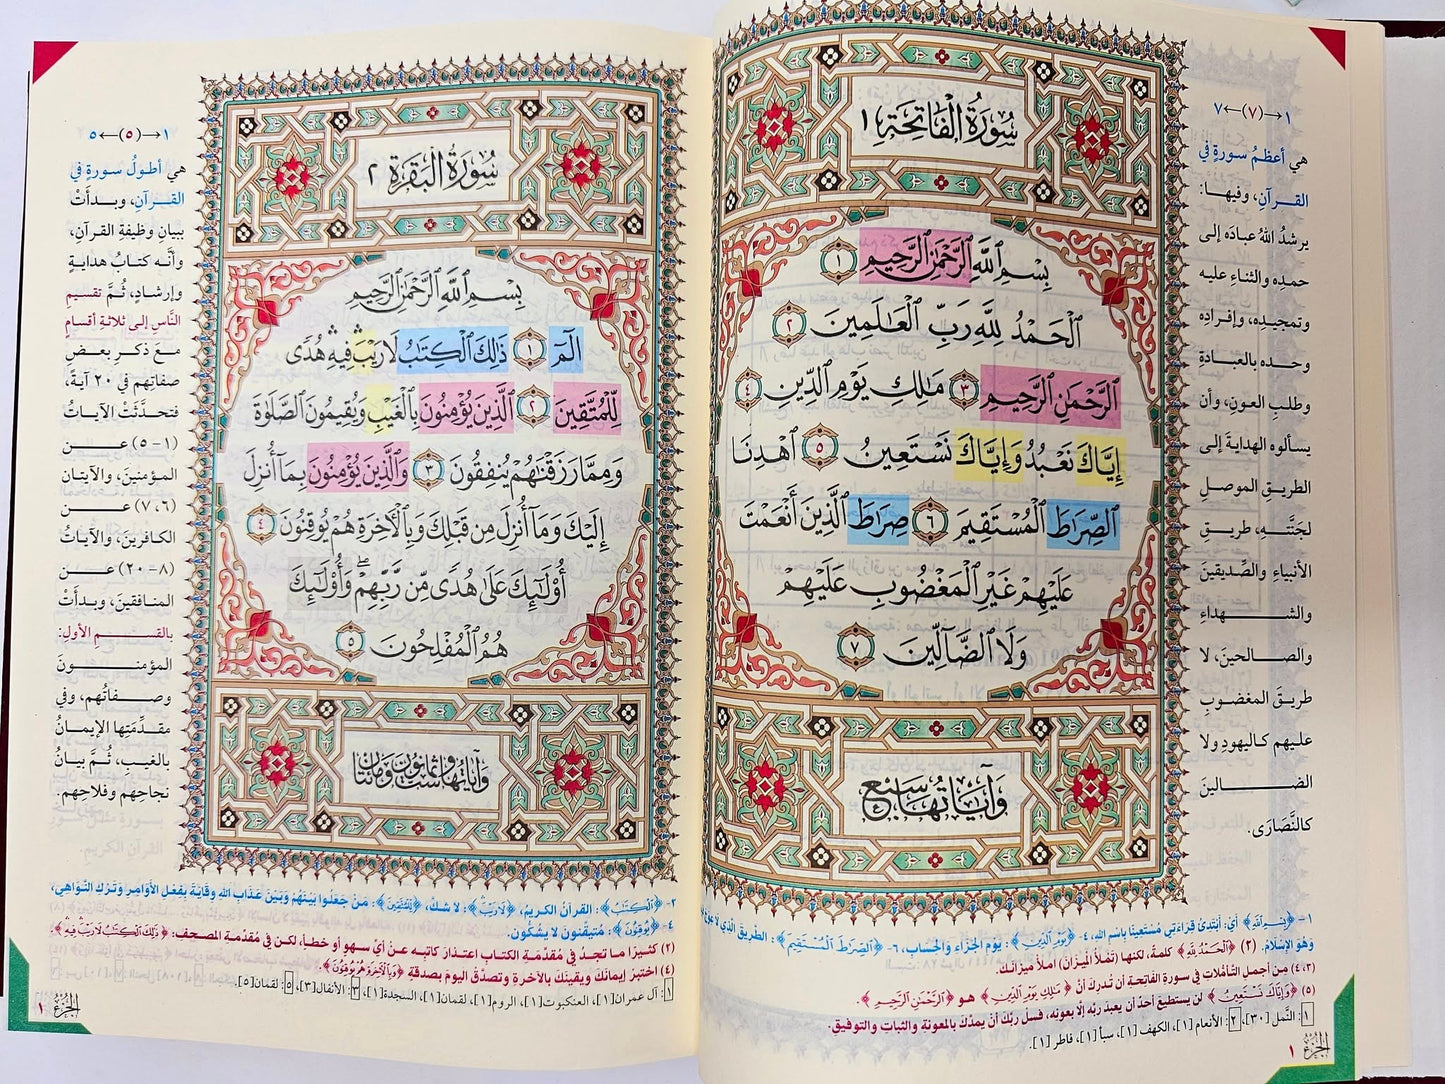 ١→(٧)←٧
هي أعظمُ سورةٍ في
القرآنِ، وفيها:
يرشدُ اللهُ عبادَه إلى
حمدِه والثناءِ عليه
وتمجيدِه، وإفرادِه
وحده بالعبادةِ
وطلبِ العونِ، وأن
يسألوه الهدايةَ إلى
الطريقِ الموصلِ
لجنَّتِه، طريقِ
الأنبياءِ والصِّديقينَ
والشهداءِ
والصالحينَ، لا
طريقَ المغضوبِ
عليهم كاليهودِ ولا
الضالينَ
كالنَّصَارَى.
سُورَةُ الْفَاتِحَةِ ١
بِسْمِ ٱللَّهِ ٱلرَّحْمَٰنِ ٱلرَّحِيمِ ١
ٱلْحَمْدُ لِلَّهِ رَبِّ ٱلْعَٰلَمِينَ ٢
ٱلرَّحْمَٰنِ ٱلرَّحِيمِ ٣ مَٰلِكِ يَوْمِ ٱلدِّينِ ٤
إِيَّاكَ نَعْبُدُ وَإِيَّاكَ نَسْتَعِينُ ٥ ٱهْدِنَا
ٱلصِّرَٰطَ ٱلْمُسْتَقِيمَ ٦ صِرَٰطَ ٱلَّذِينَ أَنْعَمْتَ
عَلَيْهِمْ غَيْرِ ٱلْمَغْضُوبِ عَلَيْهِمْ
وَلَا ٱلضَّآلِّينَ ٧
وَآيَاتُهَا سَبْعٌ
١- ﴿بِسْمِ ٱللَّهِ﴾ أيْ: أبْتَدِئُ قِرَاءَتِي مُسْتَعِينًا بِاسْمِ اللهِ، ٤- ﴿يَوْمِ ٱلدِّينِ﴾: يَوْمِ الْجَزَاءِ وَالْحِسَابِ، ٦- ﴿ٱلصِّرَٰطَ ٱلْمُسْتَقِيمَ﴾: الطَّرِيقَ الَّذِي لَا عِوَجَ
وَهُوَ الإِسْلَامُ. (٢) ﴿ٱلْحَمْدُ لِلَّهِ﴾ كلمةٌ، لكنها (تَمْلَأُ الْمِيزَانَ) املأ ميزانَك.
(٣، ٤) مِن أجملِ التَّأمُّلاتِ في سورةِ الفاتحةِ أن تُدركَ أنَّ ﴿مَٰلِكِ يَوْمِ ٱلدِّينِ﴾ هو ﴿ٱلرَّحْمَٰنِ ٱلرَّحِيمِ﴾.
(٥) ﴿وَإِيَّاكَ نَسْتَعِينُ﴾ لن يستطيعَ أحدٌ أن يعبدَ ربَّه إلَّا بعونِه، فسلْ ربَّك أنْ يمدَّكَ بالمعونةِ والثباتِ والتوفيقِ.
١: النَّمل [٣٠]، ٢: الأنعام [١]، الكهف [١]، سبأ [١]، فاطر [١].
الجزء ١
١→(٥)←٥
هي أطولُ سورةٍ في
القرآنِ، وبدأتْ
ببيانِ وظيفةِ القرآنِ،
وأنَّه كتابُ هدايةٍ
وإرشادٍ، ثُمَّ تقسيمِ
النَّاسِ إلى ثلاثةِ أقسامٍ
معَ ذكرِ بعضِ
صفاتِهم في ٢٠ آيةً،
فتحدَّثتْ الآياتُ
(١-٥) عن
المؤمنينَ، والآيتانِ
(٦، ٧) عن
الكافرينَ، والآياتُ
(٨-٢٠) عن
المنافقينَ، وبدأتْ
بالقسمِ الأولِ:
المؤمنونَ
وصفاتُهم، وفي
مقدِّمَتِها الإيمانُ
بالغيبِ، ثُمَّ بيانُ
نجاحِهم وفلاحِهم.
سُورَةُ الْبَقَرَةِ ٢
بِسْمِ ٱللَّهِ ٱلرَّحْمَٰنِ ٱلرَّحِيمِ
الٓمٓ ١ ذَٰلِكَ ٱلْكِتَٰبُ لَا رَيْبَۛ فِيهِۛ هُدًى
لِّلْمُتَّقِينَ ٢ ٱلَّذِينَ يُؤْمِنُونَ بِٱلْغَيْبِ وَيُقِيمُونَ ٱلصَّلَوٰةَ
وَمِمَّا رَزَقْنَٰهُمْ يُنفِقُونَ ٣ وَٱلَّذِينَ يُؤْمِنُونَ بِمَآ أُنزِلَ
إِلَيْكَ وَمَآ أُنزِلَ مِن قَبْلِكَ وَبِٱلْءَاخِرَةِ هُمْ يُوقِنُونَ ٤
أُو۟لَٰٓئِكَ عَلَىٰ هُدًى مِّن رَّبِّهِمْۖ وَأُو۟لَٰٓئِكَ
هُمُ ٱلْمُفْلِحُونَ ٥
وَآيَاتُهَا سِتٌّ وَثَمَانُونَ وَمِائَتَانِ
٢- ﴿ٱلْكِتَٰبُ﴾: القرآنُ الكريمُ، ﴿لَا رَيْبَ﴾: لا شكَّ، ﴿لِّلْمُتَّقِينَ﴾: مَنْ جَعَلُوا بَيْنَهُمْ وَبَيْنَ عَذَابِ اللهِ وِقَايَةً بِفِعْلِ الأَوَامِرِ وَتَرْكِ النَّوَاهِي،
٤- ﴿يُوقِنُونَ﴾: مُتيقِّنون لا يشكُّون.
(٢) كثيرًا ما تجدُ في مُقدِّمةِ الكتابِ اعتذارَ كاتبِه عنْ أيِّ سهوٍ أو خطأٍ، لكن في مُقدِّمةِ المصحفِ: ﴿ذَٰلِكَ ٱلْكِتَٰبُ لَا رَيْبَۛ فِيهِۛ﴾.
(٤) اختبرْ إيمانَك ويقينَكَ بالآخرةِ وتصدَّقْ اليومَ بصدقةٍ ﴿وَبِٱلْءَاخِرَةِ هُمْ يُوقِنُونَ﴾.
١: آل عمران [١]، العنكبوت [١]، الروم [١]، لقمان [١]، السجدة [١]، ٣: الأنفال [٣]، ٥: لقمان [٥]
الجزء ١